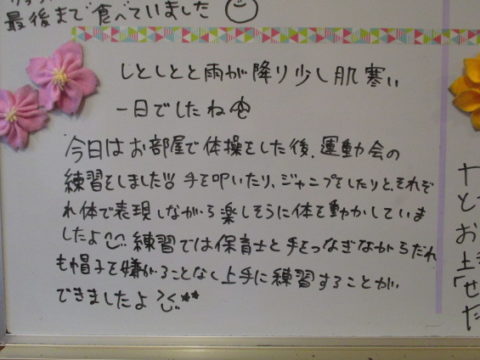 最後まで食べていました
しとしとと雨が降り少し肌寒い
一日でしたね
今日はお部屋で体操をした後、運動会の
練習をしました!! 手を叩いたり、ジャンプをしたりと、それぞ
れ体で表現しながら楽しそうに体を動かしていま
したよ 練習では保育士と手をつなぎながらだれ
も帽子を嫌がることなく上手に練習することが
できましたよ
と
お
上
「せ
た